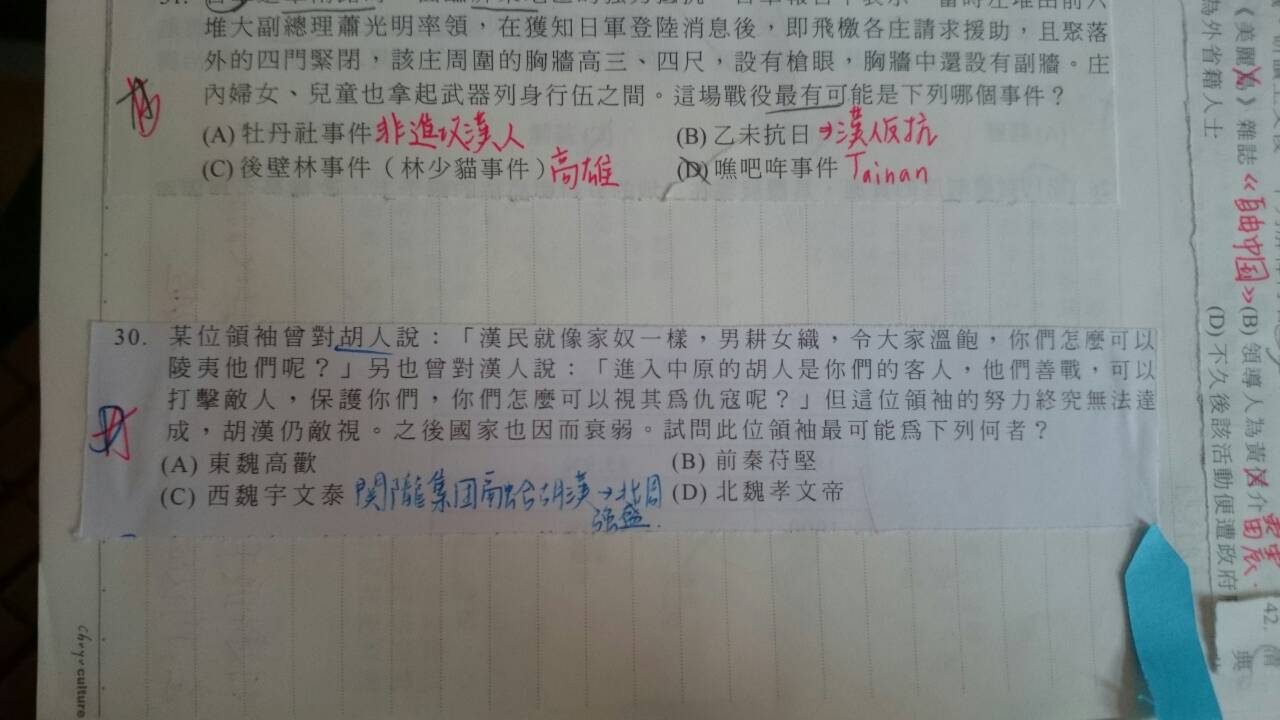 堆大副總理蕭光明率領，在獲知日軍登陸消息後，即飛檄各庄請求援助，且聚落
外的四門緊閉，該庄周圍的胸牆高三、四尺，設有槍眼，胸牆中還設有副牆。庄
內婦女、兒童也拿起武器列身行伍之間。這場戰役最有可能是下列哪個事件？
(A) 牡丹社事件 非進攻漢人
(B) 乙未抗日 →漢人反抗
(C) 後壁林事件（林少貓事件）高雄
(D) 噍吧哖事件 Tainan
30. 某位領袖曾對胡人說：「漢民就像家奴一樣，男耕女織，令大家溫飽，你們怎麼可以
陵夷他們呢？」另也曾對漢人說：「進入中原的胡人是你們的客人，他們善戰，可以
打擊敵人，保護你們，你們怎麼可以視其為仇寇呢？」但這位領袖的努力終究無法達
成，胡漢仍敵視。之後國家也因而衰弱。試問此位領袖最可能為下列何者？
(A) 東魏高歡
(B) 前秦苻堅
(C) 西魏宇文泰 関隴集団融合胡漢→北周
强盛
(D) 北魏孝文帝
為外省籍人士
《美麗》雜誌《自由中国》(B) 領導人為黃介
(D) 不久後該活動便遭政府
42.
culture